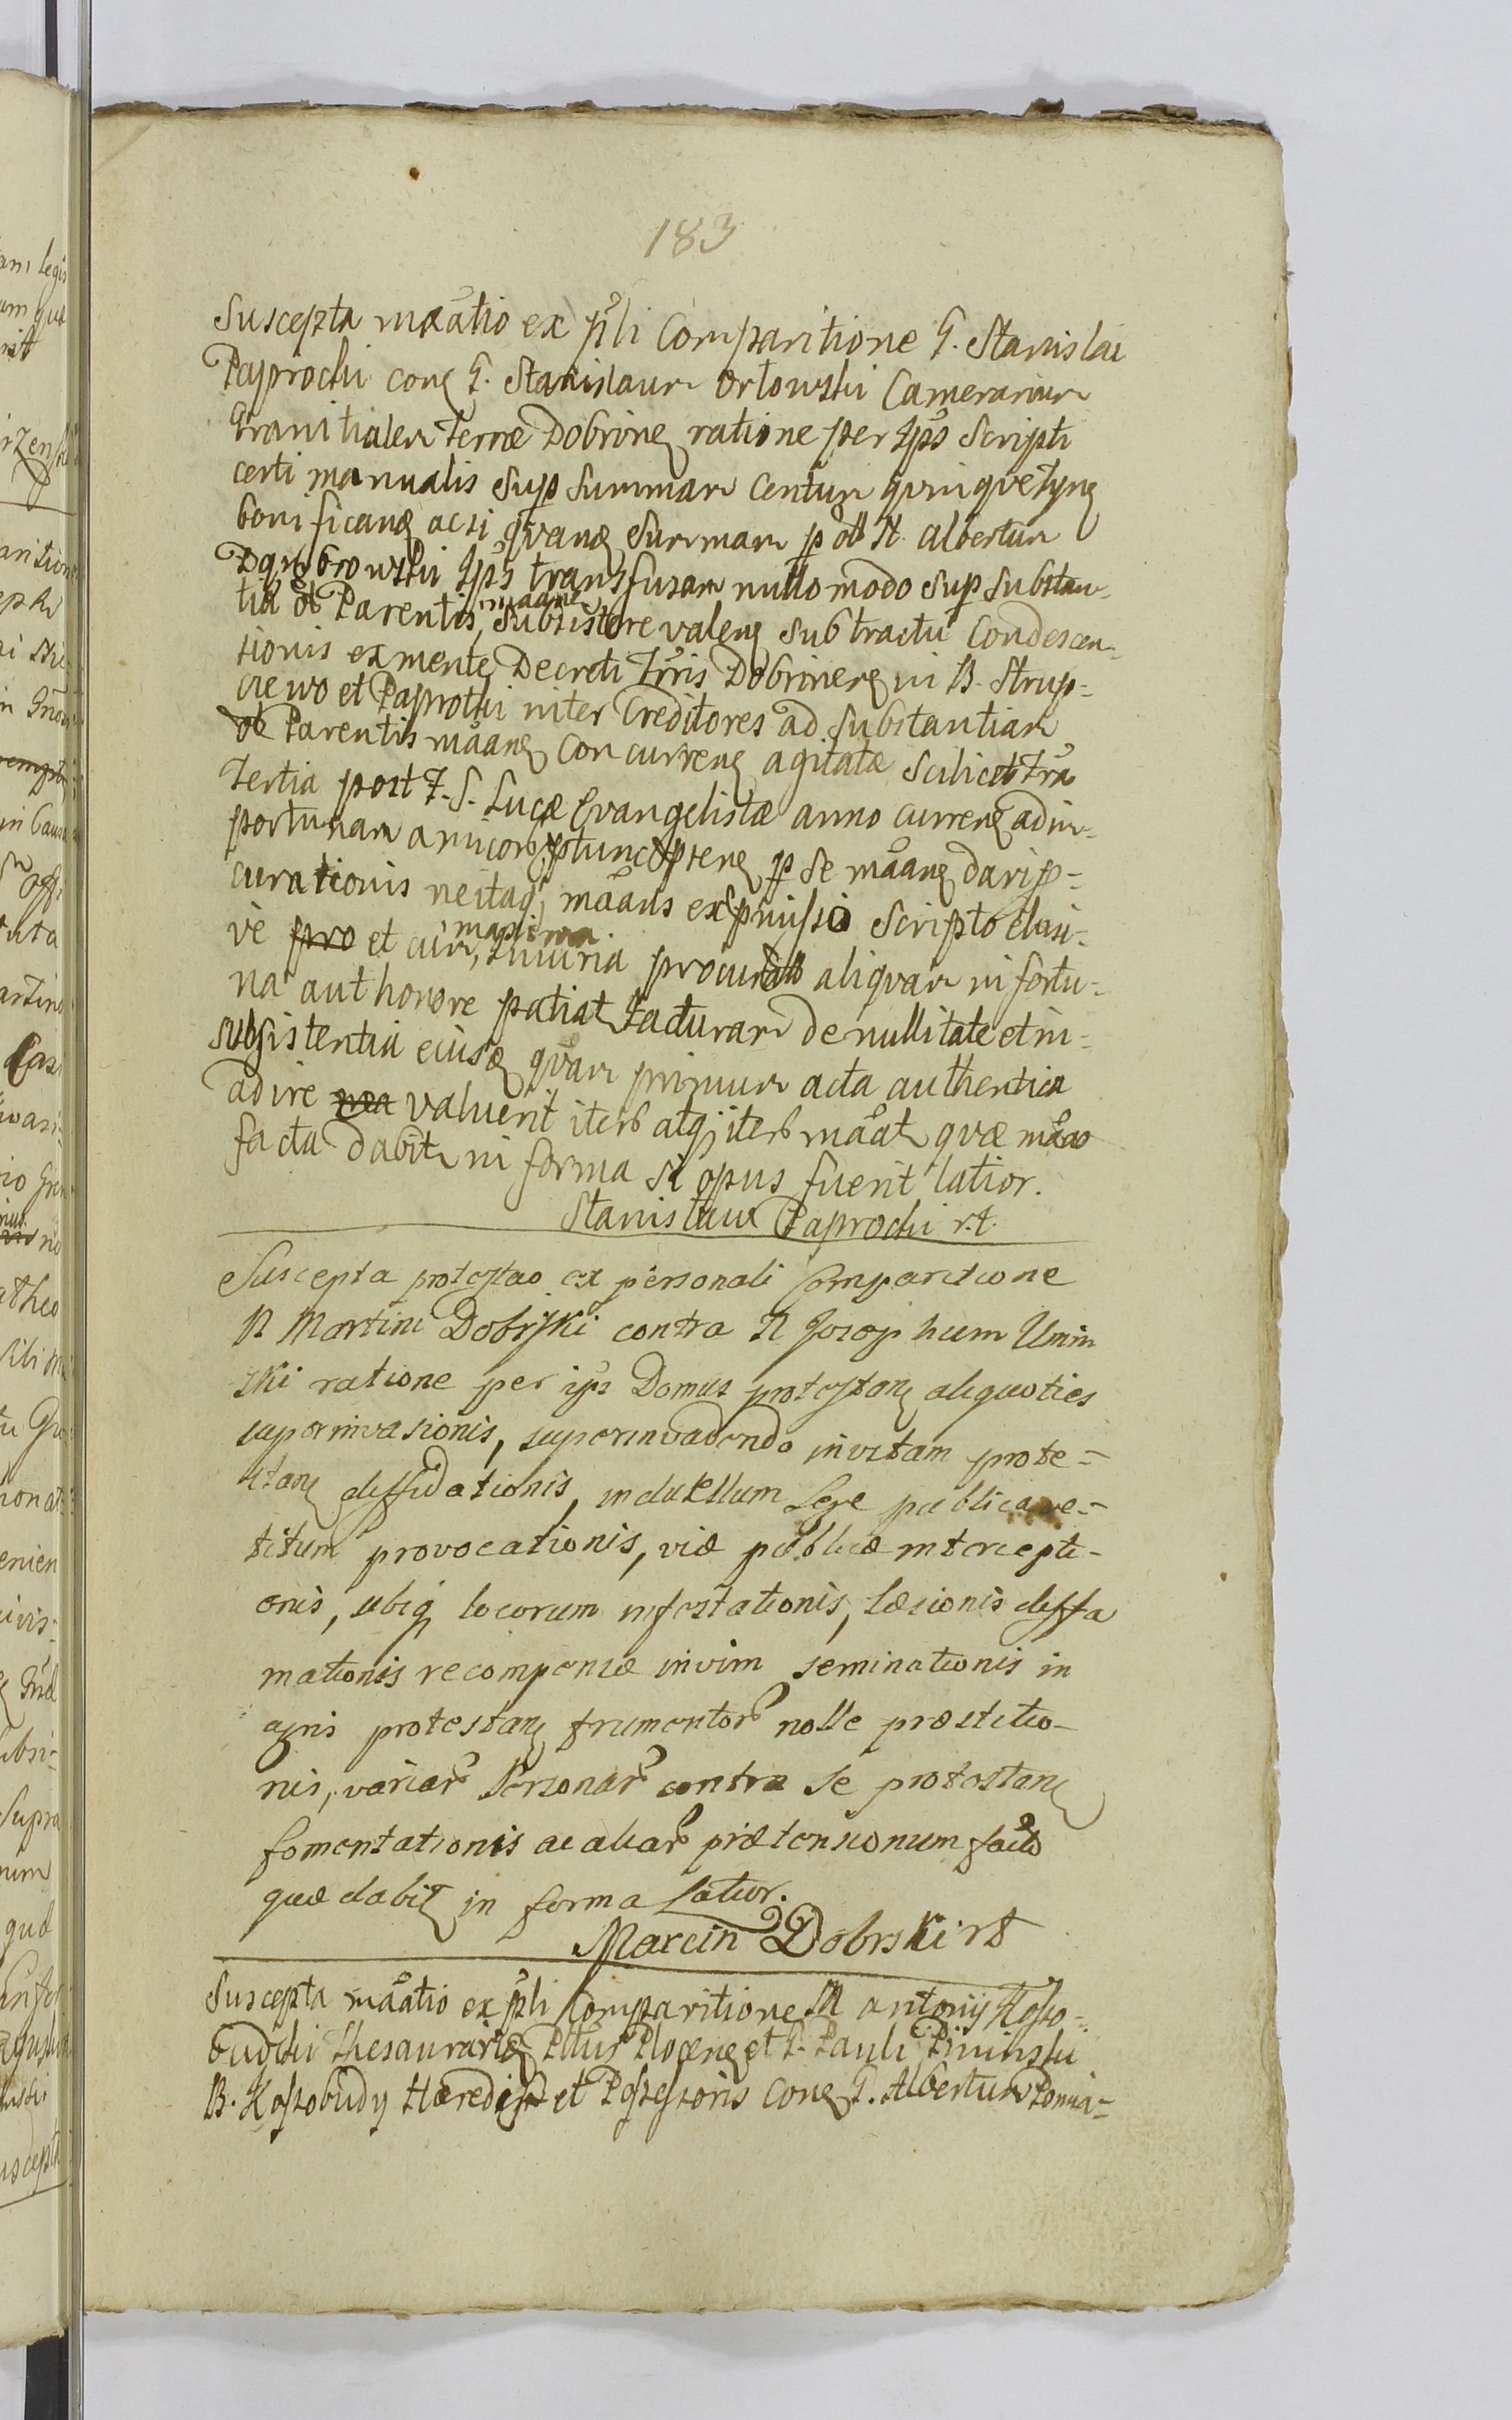 183
Suscepta mãatio ex pſli Comparitione G. Stanislai
Paprocki conq G. Stanislaum Orłowski Camerarium
Granitialem Terræ Dobrinen ratione per Ips Scripti
certi manualis Sup Summam Centum quinque Tynf
bonificanq acsi quanq Summam p olt N. Albertum
Dąmbrowski Ips transfusam nullo modo Sup Substan-
tia olt Parentis, mãanq Subsistere valenq Sub tractu Condescen-
sionis ex mente Decreti Trris Dobrinenq in B. Strup-
czewo et Paprotki inter Creditores ad Substantiam
olt Parentis mãanq Concurrenq agitatæ Scilicet Fra
Tertia post F. S. Lucæ Evangelistæ anno currenq ad in-
portunam amicor ptunc psenq p Se mãanq dari p-
curationis ne itaq mãans ex pmisso Scripto elusi-
ve pro et cum, maxima Iniuria procurat aliquam in fortu-
na aut honore patiat Iacturam de nullitate et in-
subsistentia eiusq quam primum acta authentica
adire valuerit iterb atq iterb mãat quæ mãao
facta dabit in forma si opus fuerit latior.
Stanisław Paprocki r.t.
Suscepta protestao ex personali Comparitione
N Martini Dobrski contra N Josephum Umin
ski ratione per ips Domus protestanq aliquoties
superinvasionis, superinvadendo in vitam prote-
stanq diffidationis, in duellum Lege publica ve-
titum provocationis, viæ publicæ intercepti-
onis, ubiq locorum infestationis, læsionis diffa
mationis recompensæ in vim seminationis in
agris protestanq frumentor nolle præstitio-
nis, variar Personar contra se protestanq
fomentationis ac aliar prætensionum facto
quæ dabit in forma Latior.
Marcin Dobrski rt
Suscepta mãatio ex pſli Comparitione M Antonij Kosso-
budzki Thesauraridę Pttus Plocenq et G. Pauli Pininski
B. Kossobudy Hæredis et Possessoris Conq G. Albertum Pomia-